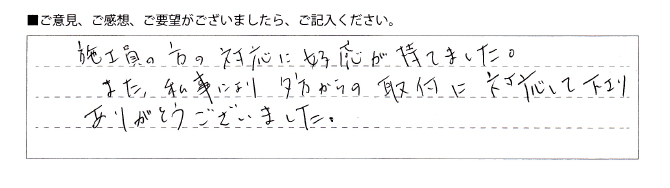 ■ご意見、ご感想、ご要望がございましたら、ご記入ください。
施工員の方の対応に好応が持てました。
また、私事により夕方からの取付に対応して下さり
ありがとうございました。